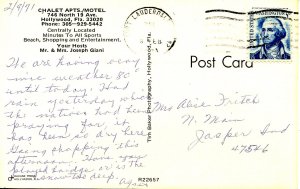 2/9/91
CHALET APTS./MOTEL
746 North 19 Ave.
Hollywood, Fla. 33020
Phone: 305-929-5442
Centrally Located
Minutes To All Sports
Beach, Shopping and Entertainment
Your Hosts
Mr. & Mrs. Joseph Giani
We are having very
nice weather 80
until today. Had
rain yesterday which
the natives had been
praying for, it
has been so dry here
Going shopping this
afternoon. Have you
played bridge or is the
snow too deep.
R22657
Tim Baker Photography, Hollywood, Fla.
LAUDERDALE
FEB
WASHINGTON
Post Card
Mrs Alice Fritch
N. Main
Jasper Ind
47546